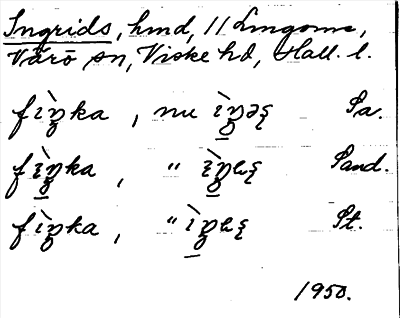 Ingrids, hmd, 11 Lingome,
Värö sn, Viske hd, Hall. l.
fìŋka, nu ìŋəʂ Sa.
fìŋka, " ìŋɐʂ Sand.
fìŋka, " ìŋɐʂ St.
1950.